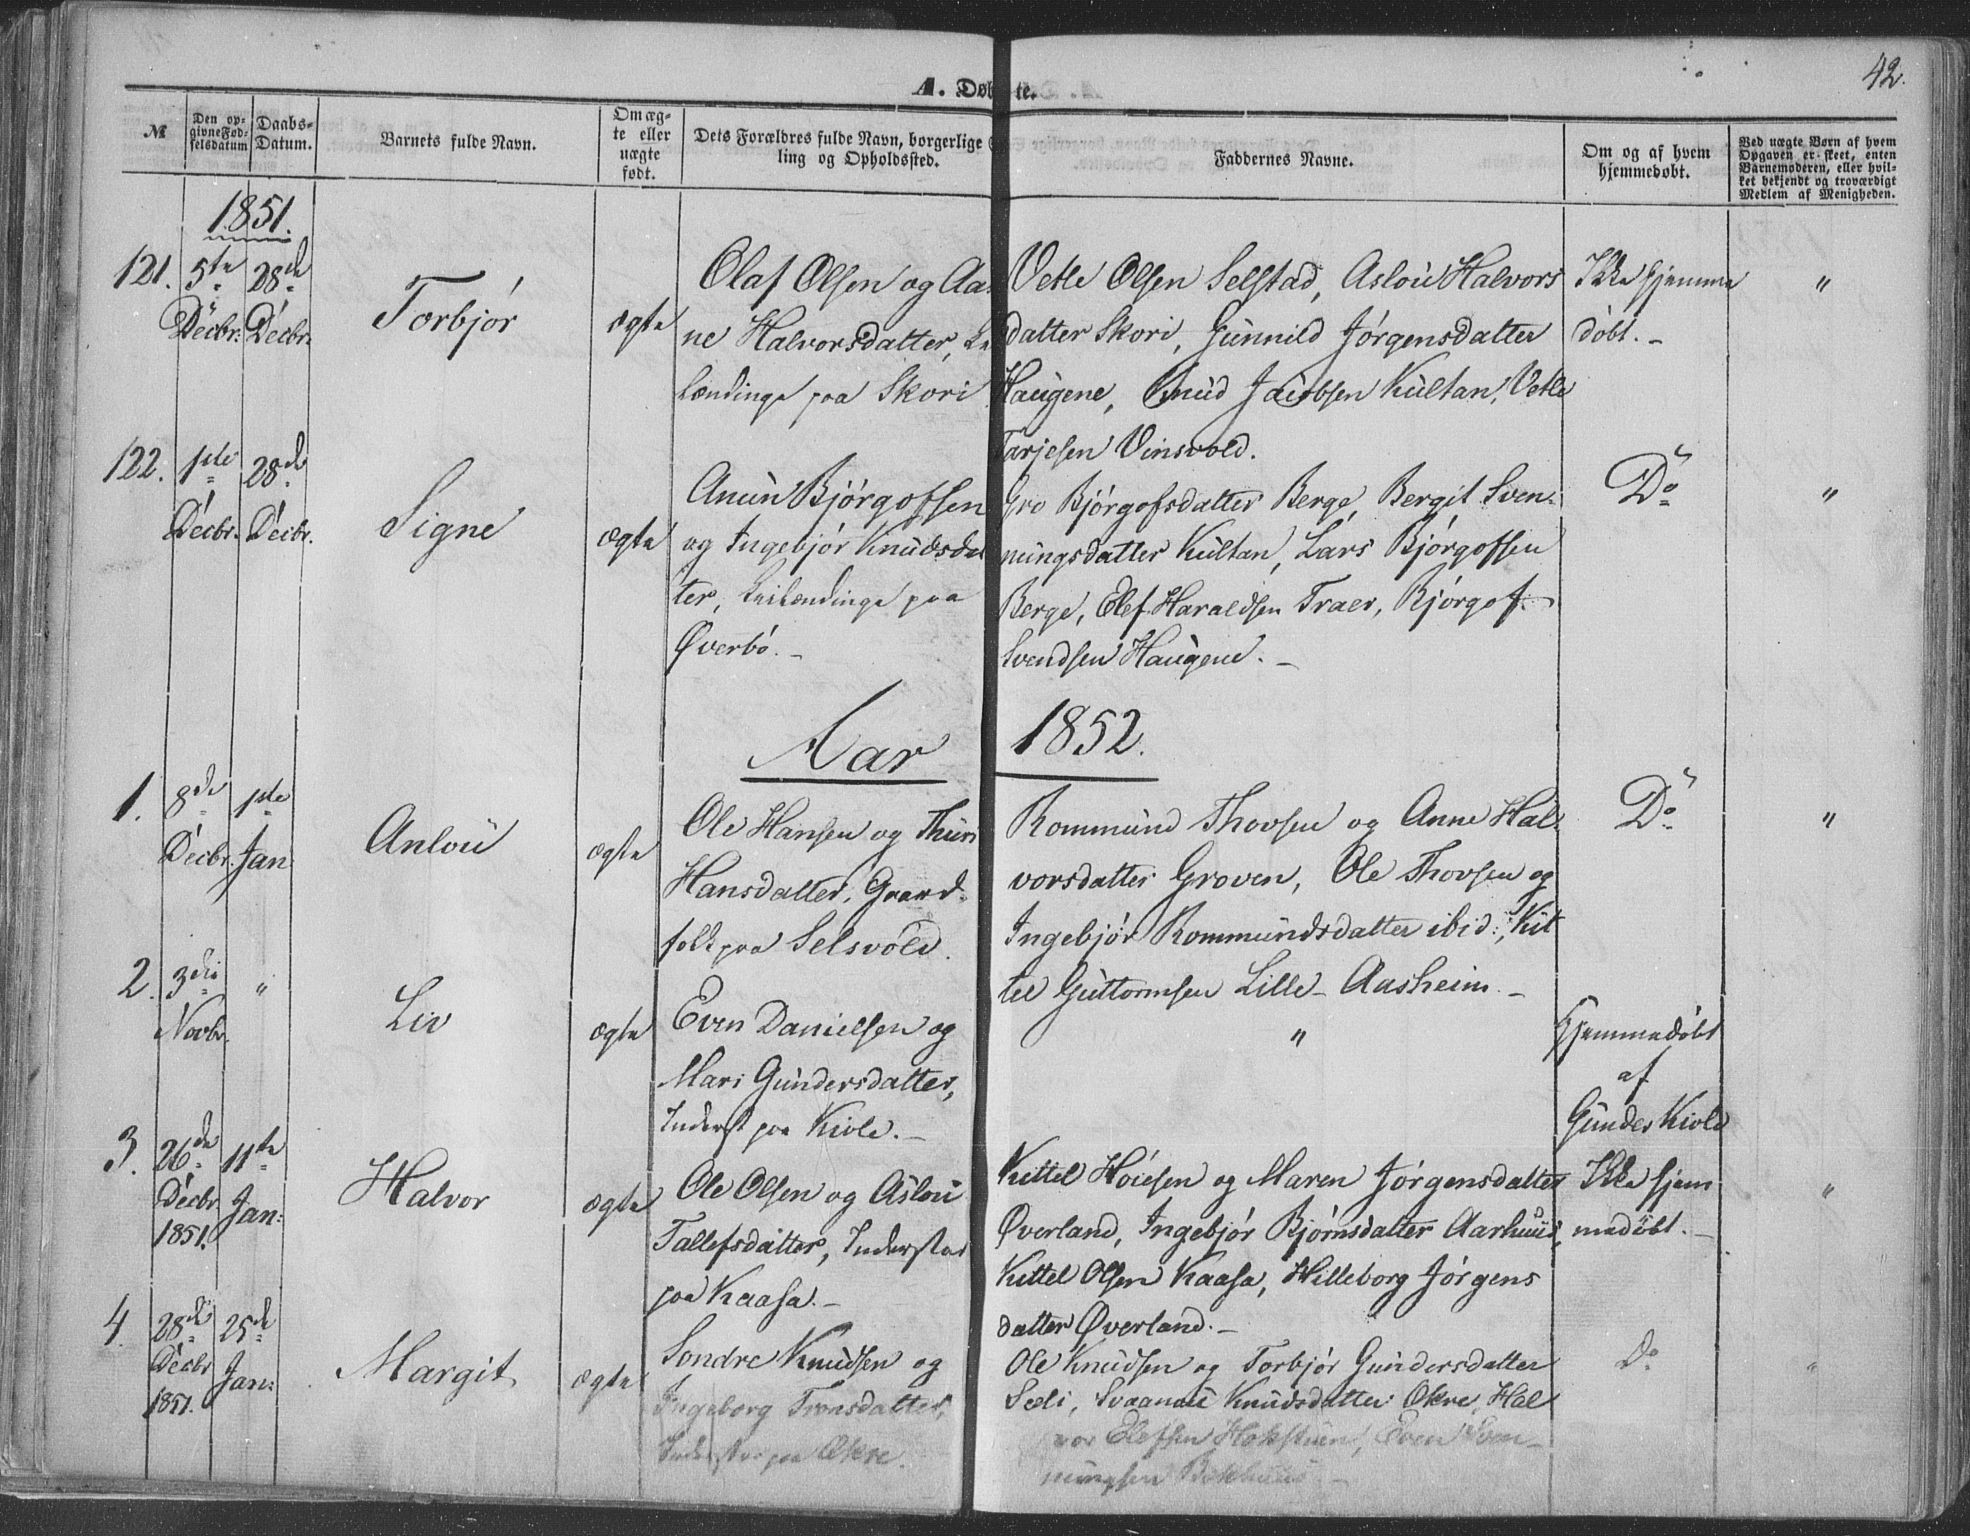 42.
A. Døbte.
№
Den opgivne Fødselsdatum
Daabs-Datum.
Barnets fulde Navn.
Om ægte eller uægte født.
Dets Forældres fulde Navn, borgerlige
ling og Opholdssted.
Faddernes Navne.
Om og af hvem hjemmedøbt.
Ved uægte Børn af hvem Opgaven er skeet, enten Barnemoderen, eller hvilket bekjendt og troværdigt Medlem af Menigheden.
1851.
121. 5te Decbr. 28de Decbr. Torbjør ægte
Olaf Olsen og Aa
ne Halvorsdatter,
lændinge paa Skori
Vetle Olsen Selstad, Aslou Halvors
datter Skori, Gunnild Jørgensdatter
Haugene, Knud Jacobsen Kultan, Vetle
Tarjesen Vinsvold.
Ikke hjemme
døbt. -
"
122. 1ste Decbr. 28de Decbr. Signe ægte
Anun Bjørgofsen
og Ingebjør Knudsdat
ter, Leilændinge paa
Øverbø. -
Gro Bjørgofsdatter Berge, Bergit Sven-
nungsdatter Kultan, Lars Bjørgofsen
Berge, Elef Haraldsen Traer, Bjørgof
Svendsen Haugene. -
Do
"
Aar 1852.
1. 8de Decbr. 1ste Jan: Anlou ægte
Ole Hansen og Thuri
Hansdatter, Gaard-
folk paa Selsvold.
Rommund Thovsen og Anne Hal-
vorsdatter Groven, Ole Thovsen og
Ingebjør Rommundsdatter ibid:, Kit
tel Guttormsen Lille-Aasheim. -
Do
"
2. 3die Novbr. " Liv ægte
Even Danielsen og
Mari Gundersdatter,
Inderst paa Kivle. -
"
Hjemmedøbt
af
Gunder Kivle
3. 26de Decbr 1851. 11te Jan: Halvor ægte
Ole Olsen og Aslou
Tallefsdatter, Inderster
paa Kaasa. -
Kittel Høiesen og Maren Jørgensdatter
Øverland, Ingebjør Bjørnsdatter Aarhuus,
Kittel Olsen Kaasa, Hilleborg Jørgens
datter Øverland. -
Ikke hjem
medøbt. -
"
4. 28de Decbr 1851. 25de Jan: Margit ægte
Sondre Knudsen og
Ingeborg Tronsdatter,
Inderster paa Økre.
Ole Knudsen og Torbjør Gundersdatter
Sæli, Svaanau Knudsdatter Økre, Hal
vor Elefsen Hakstuen, Even Sven-
nungsen Bækhuus. -
Do
"